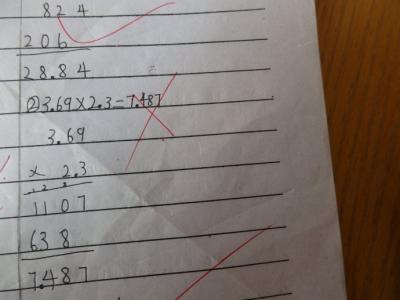 824
206
28.84
②3.69×2.3=7.487
3.69
× 2.3
1107
638
7.487